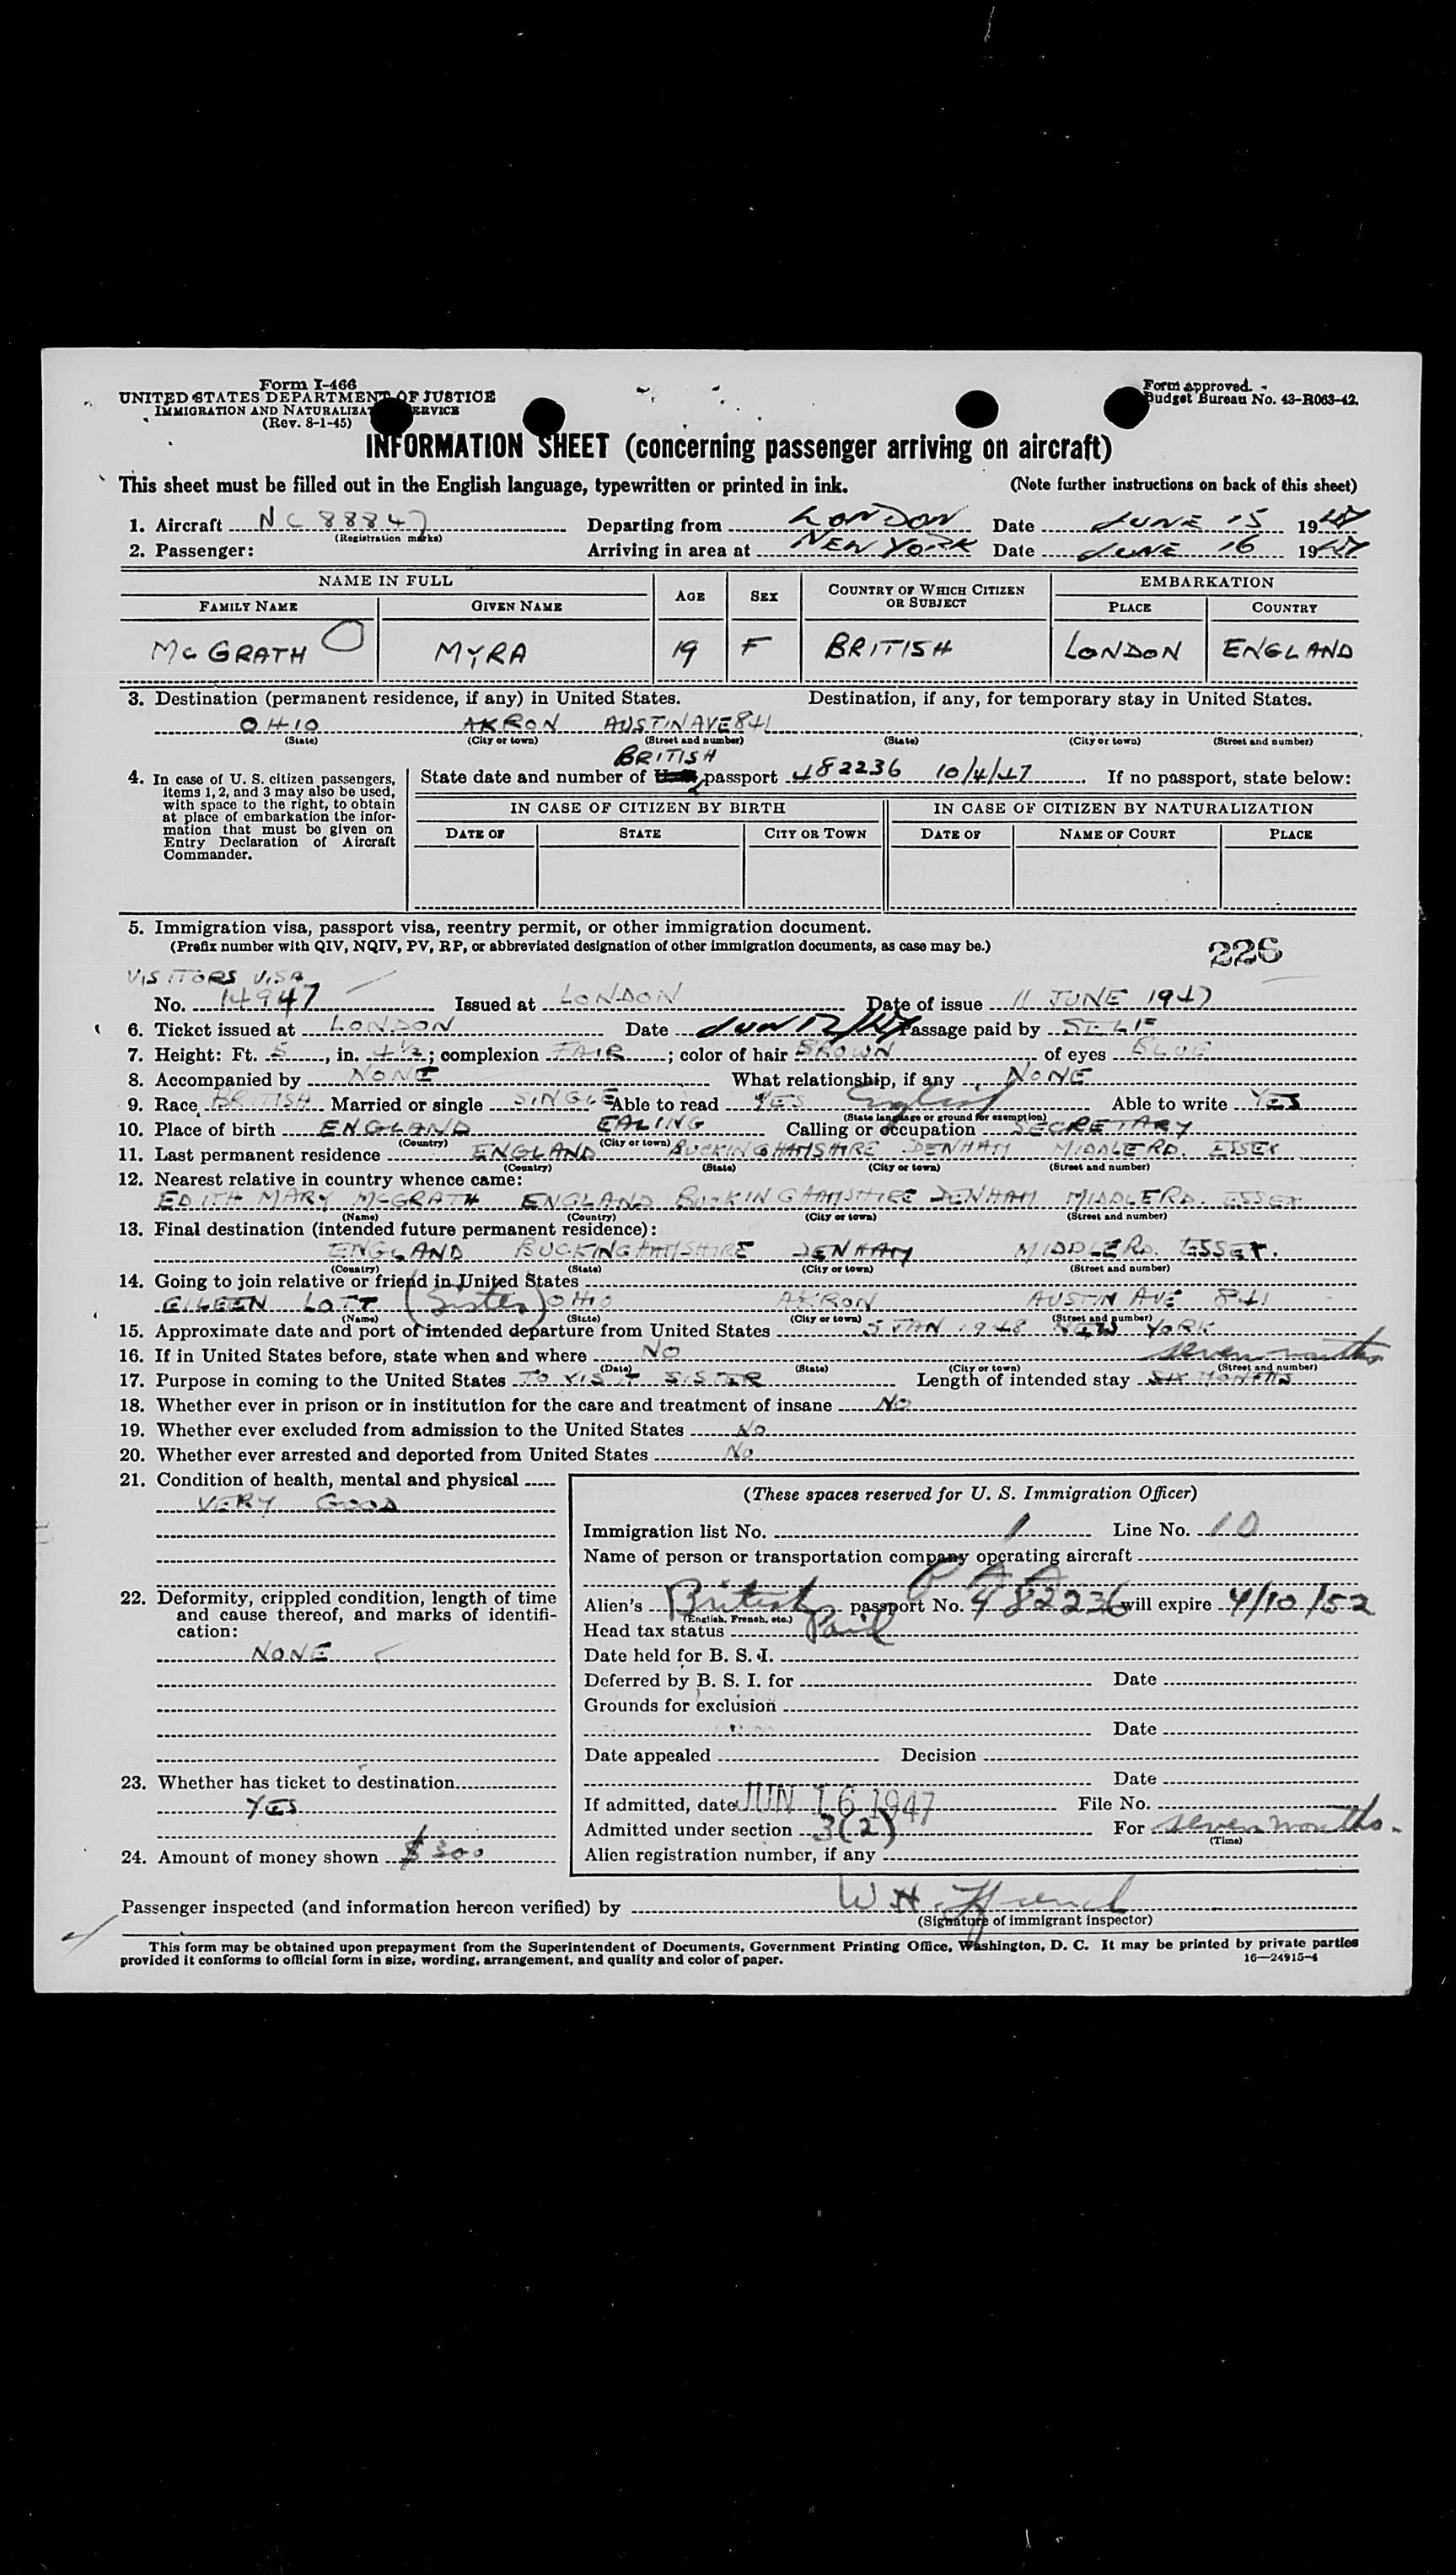 Form I-466
UNITED STATES DEPARTMENT OF JUSTICE
IMMIGRATION AND NATURALIZAT ERVICE
(Rev. 8-1-45)
Form approved.
Budget Bureau No. 43-R063-42.
INFORMATION SHEET (concerning passenger arriving on aircraft)
This sheet must be filled out in the English language, typewritten or printed in ink. (Note further instructions on back of this sheet)
1. Aircraft NC 88847 Departing from LONDON Date JUNE 15 1947
(Registration marks)
2. Passenger: Arriving in area at NEW YORK Date JUNE 16 1947
NAME IN FULL AGE SEX COUNTRY OF WHICH CITIZEN OR SUBJECT EMBARKATION
FAMILY NAME GIVEN NAME PLACE COUNTRY
McGRATH MYRA 19 F BRITISH LONDON ENGLAND
3. Destination (permanent residence, if any) in United States. Destination, if any, for temporary stay in United States.
OHIO AKRON AUSTIN AVE 841
(State) (City or town) (Street and number) (State) (City or town) (Street and number)
BRITISH
4. In case of U. S. citizen passengers, items 1, 2, and 3 may also be used, with space to the right, to obtain at place of embarkation the information that must be given on Entry Declaration of Aircraft Commander.
State date and number of passport 482236 10/4/47 If no passport, state below:
IN CASE OF CITIZEN BY BIRTH IN CASE OF CITIZEN BY NATURALIZATION
DATE OF STATE CITY OR TOWN DATE OF NAME OF COURT PLACE
5. Immigration visa, passport visa, reentry permit, or other immigration document.
(Prefix number with QIV, NQIV, PV, RP, or abbreviated designation of other immigration documents, as case may be.) 226
VISITORS VISA
No. 14947 Issued at LONDON Date of issue 11 JUNE 1947
6. Ticket issued at LONDON Date JUN 12/47 Passage paid by SELF
7. Height: Ft. 5, in. 4½; complexion FAIR; color of hair BROWN of eyes BLUE
8. Accompanied by NONE What relationship, if any NONE
9. Race BRITISH Married or single SINGLE Able to read YES English Able to write YES
(State language or ground for exemption)
10. Place of birth ENGLAND EALING Calling or occupation SECRETARY
(Country) (City or town)
11. Last permanent residence ENGLAND BUCKINGHAMSHIRE DENHAM MIDDLE RD. ESSEX
(Country) (State) (City or town) (Street and number)
12. Nearest relative in country whence came:
EDITH MARY McGRATH ENGLAND BUCKINGHAMSHIRE DENHAM MIDDLE RD. ESSEX
(Name) (Country) (City or town) (Street and number)
13. Final destination (intended future permanent residence):
ENGLAND BUCKINGHAMSHIRE DENHAM MIDDLE RD. ESSEX.
(Country) (State) (City or town) (Street and number)
14. Going to join relative or friend in United States
EILEEN LOTT (Sister) OHIO AKRON AUSTIN AVE 841
(Name) (State) (City or town) (Street and number)
15. Approximate date and port of intended departure from United States 5 JAN 1948 NEW YORK
16. If in United States before, state when and where NO
(Date) (State) (City or town) (Street and number)
seven months
17. Purpose in coming to the United States TO VISIT SISTER Length of intended stay SIX MONTHS
18. Whether ever in prison or in institution for the care and treatment of insane NO
19. Whether ever excluded from admission to the United States NO
20. Whether ever arrested and deported from United States NO
21. Condition of health, mental and physical
VERY GOOD
22. Deformity, crippled condition, length of time and cause thereof, and marks of identification:
NONE
23. Whether has ticket to destination
YES
24. Amount of money shown $300
(These spaces reserved for U. S. Immigration Officer)
Immigration list No. 1 Line No. 10
Name of person or transportation company operating aircraft
P A A
Alien's British passport No. 482236 will expire 4/10/52
(English, French, etc.)
Head tax status Paid
Date held for B. S. I.
Deferred by B. S. I. for Date
Grounds for exclusion
Date
Date appealed Decision
Date
If admitted, date JUN 16 1947 File No.
Admitted under section 3(2) For seven months.
(Time)
Alien registration number, if any
Passenger inspected (and information hereon verified) by W H
(Signature of immigrant inspector)
This form may be obtained upon prepayment from the Superintendent of Documents, Government Printing Office, Washington, D. C. It may be printed by private parties
provided it conforms to official form in size, wording, arrangement, and quality and color of paper. 16—24915-4